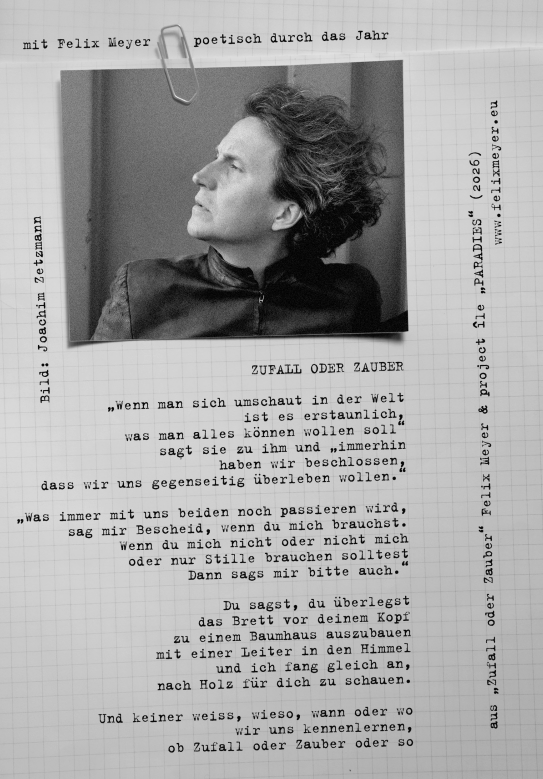 mit Felix Meyer poetisch durch das Jahr
Bild: Joachim Zetzmann
ZUFALL ODER ZAUBER
„Wenn man sich umschaut in der Welt
ist es erstaunlich,
was man alles können wollen soll“
sagt sie zu ihm und „immerhin
haben wir beschlossen,
dass wir uns gegenseitig überleben wollen.“
„Was immer mit uns beiden noch passieren wird,
sag mir Bescheid, wenn du mich brauchst.
Wenn du mich nicht oder nicht mich
oder nur Stille brauchen solltest
Dann sags mir bitte auch.“
Du sagst, du überlegst
das Brett vor deinem Kopf
zu einem Baumhaus auszubauen
mit einer Leiter in den Himmel
und ich fang gleich an,
nach Holz für dich zu schauen.
Und keiner weiss, wieso, wann oder wo
wir uns kennenlernen,
ob Zufall oder Zauber oder so
aus „Zufall oder Zauber“ Felix Meyer & project île „PARADIES“ (2026)
www.felixmeyer.eu